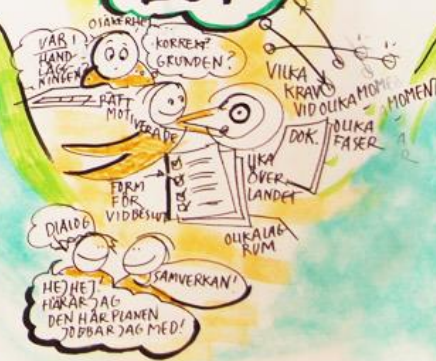 OSÄKERHET
VAR I
HAND-
LÄGG-
NINGEN?
KORREKT
GRUNDEN?
RÄTT
MOTIVERADE
VILKA
KRAV
VID OLIKA MOMENT
MOMENT
DOK.
OLIKA
FASER
FORM
FÖR
VID BESLUT
LIKA
ÖVER
LANDET
OLIKA LAG
RUM
DIALOG
SAMVERKAN!
HEJ HEJ!
HÄR ÄR JAG
DEN HÄR PLANEN
JOBBAR JAG MED!